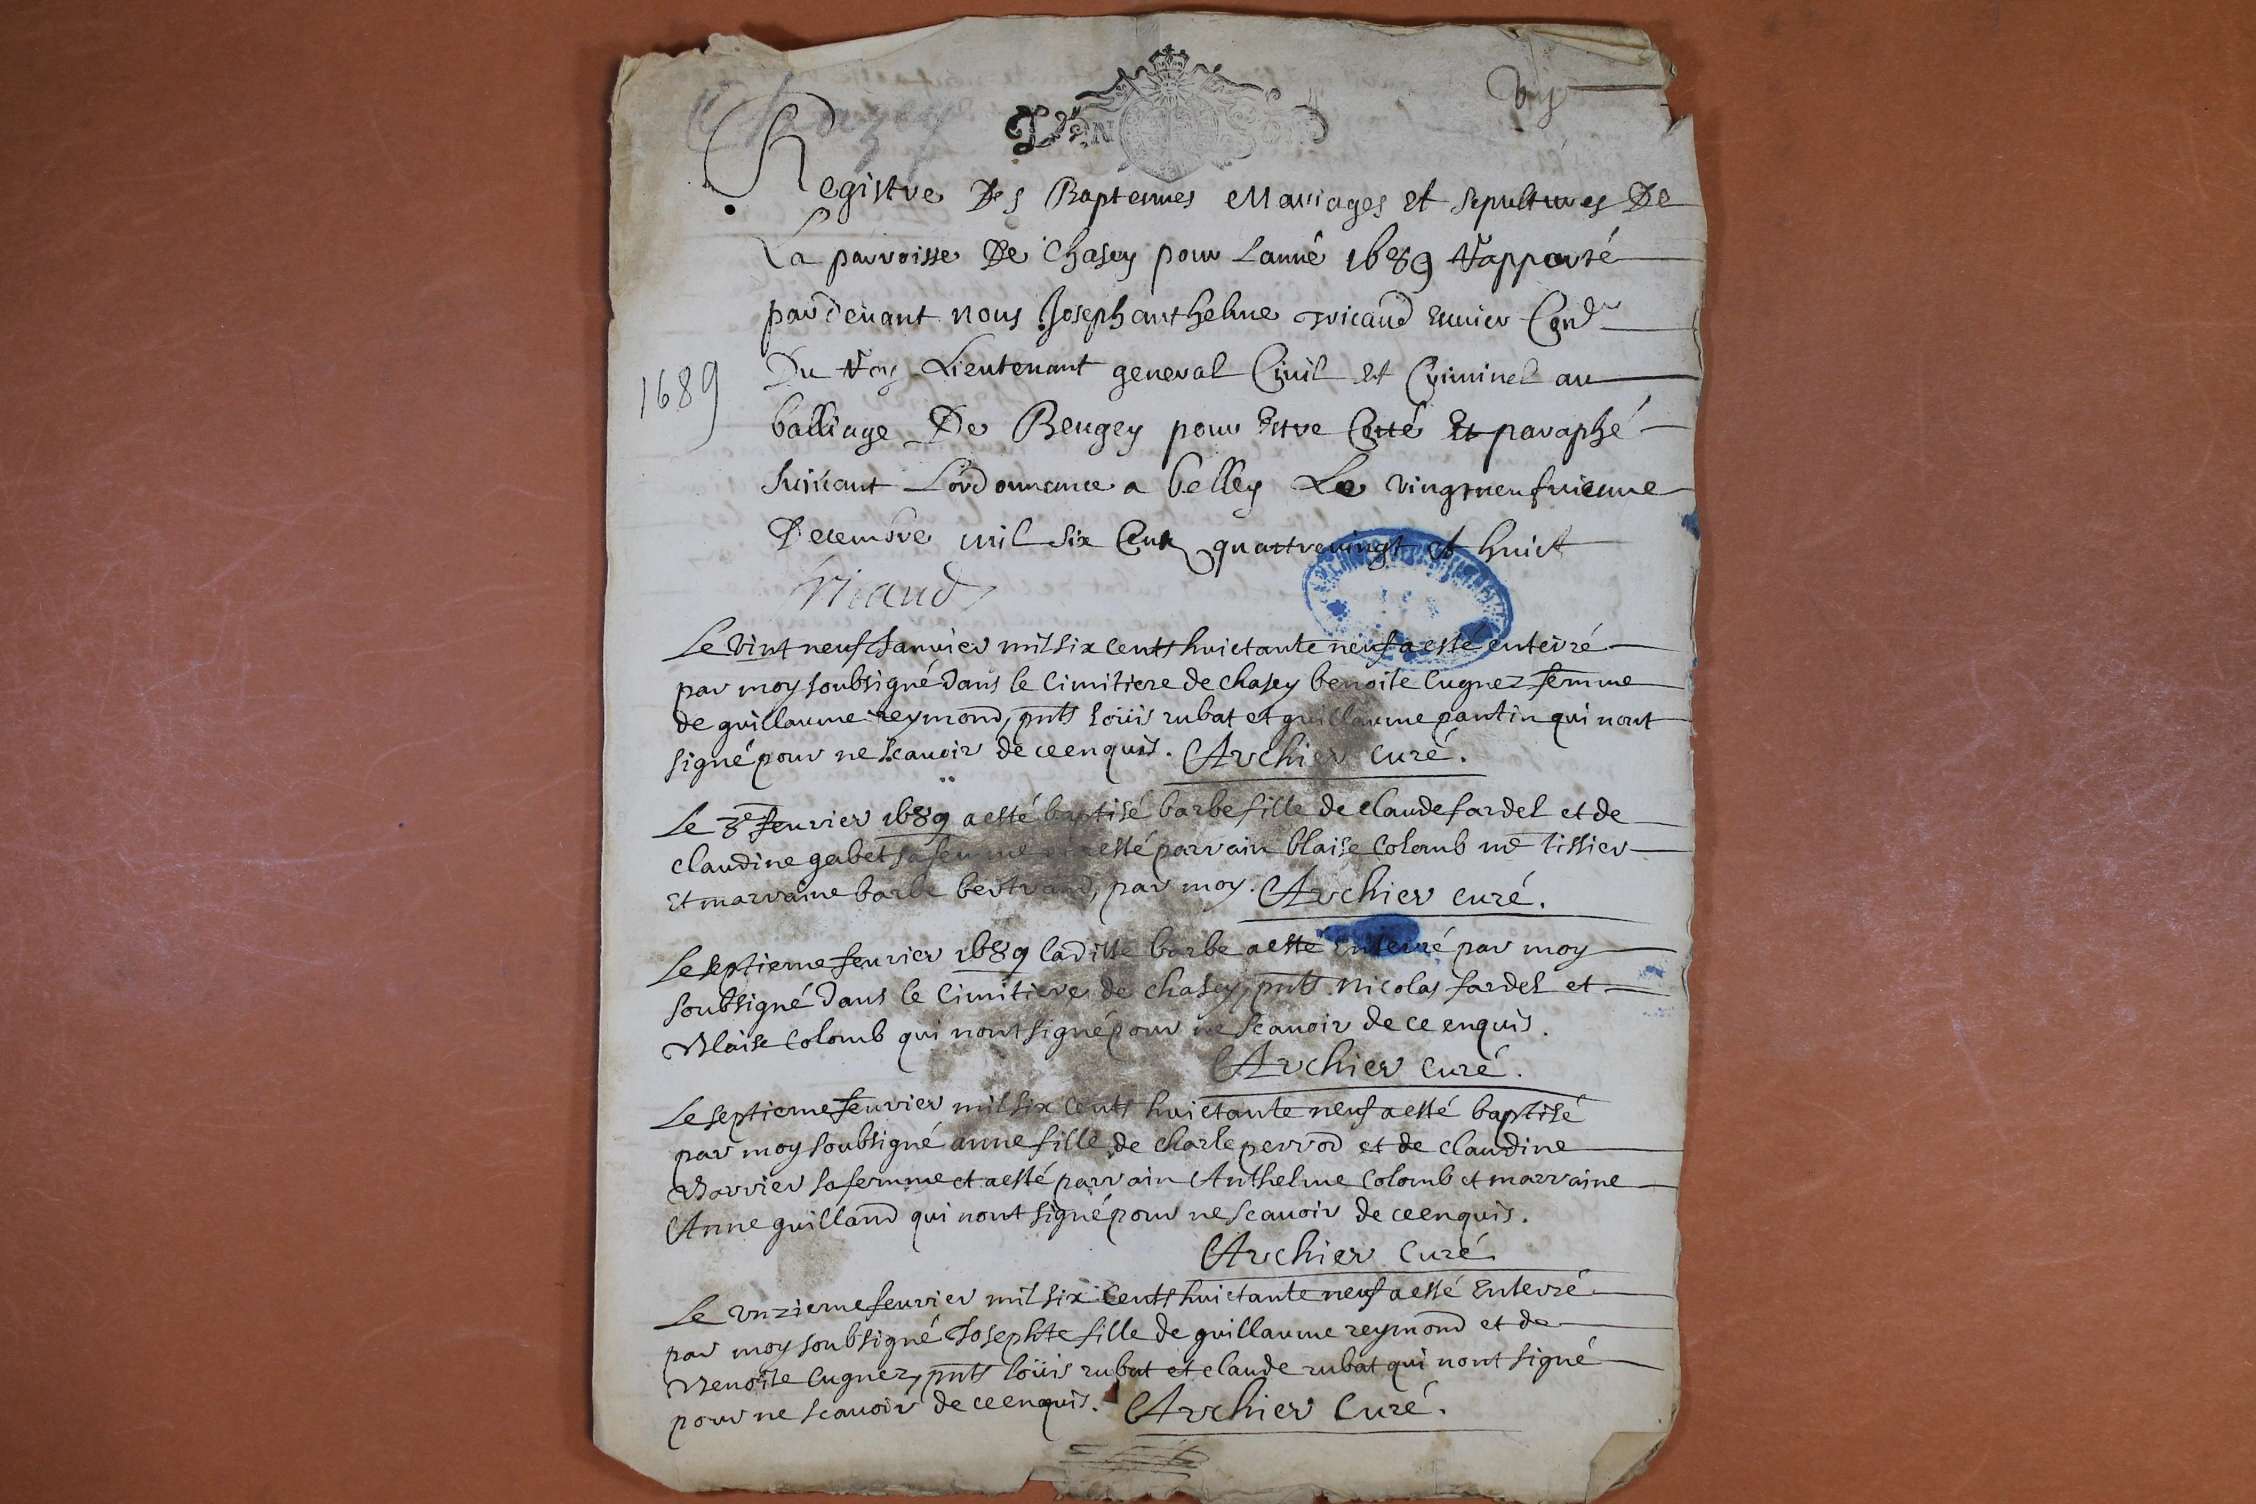 Chazey
Registre Des Baptesmes Mariages et sepultures De
La parroisse De Chasey pour Lanné 1689 Rapporté
pardeuant nous Josephanthelme Tricaud Escuier Con.er
Du Roy Lieutenant general Ciuil et Criminel au
1689
balliage De Beugey pour Estre Cotté Et paraphé
suiuant Lordonnance a belley Le vingtneufuieme
Decembre mil six Cent quattreuingt et huict
Tricaud
Le vint neuf Januier mil six cents huictante neuf a esté enterré
par moy soubsigné dans le Cimitiere de chasey benoite Cugnez femme
de guillaume reymond, pnts loüis rubat et guillaume pantin qui nont
signé pour ne scauoir de ce enquis. Archier curé.
Le 3e feurier 1689 a esté baptisé barbe fille de claude fardel et de
claudine gabet sa femme et a esté parrain blaise Colomb me tissier
Et marraine barbe bertrand, par moy. Archier curé.
Le septieme feurier 1689 laditte barbe a esté Enterré par moy
soubsigné dans le Cimitiere de chasey, pnts nicolas fardel et
Blaise Colomb qui nont signé pour ne scauoir de ce enquis.
Archier curé.
Le septieme feurier mil six cents huictante neuf a esté baptisé
par moy soubsigné anne fille de charle perrod et de claudine
Barrier sa femme et a esté parrain Anthelme Colomb et marraine
Anne guilland qui nont signé pour ne scauoir de ce enquis.
Archier Curé
Le vnzieme feurier mil six Cents huictante neuf a esté Enterré
par moy soubsigné Josephte fille de guillaume reymond et de
Benoite Cugnez, pnts loüis rubat et claude rubat qui nont signé
pour ne scauoir de ce enquis. Archier Curé.